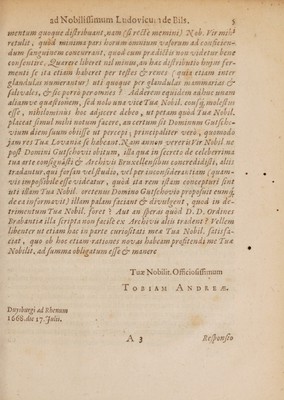 ad Nobilissimum Ludovicum de Bils. 5
mentum quoque distribuant, nam (si rectè memini) Nob. Vir mihi
retulit, quòd minima pars horum omnium vasorum ad conficien-
dum sanguinem concurrant, quod cum prædictis non videtur bene
consentire. Quærere liberet vel minus, an hæc distributio hujus fer-
menti fe ita etiam haberet per testes & renes (quia etiam inter
glandulas numerantur) uti quoque per glandulas mammarias &
salivales, & sic porrò per omnes? Adderem equidem adhuc unam
aliamve quæstionem, sed nolo una vice Tuæ Nobil. consq. molestus
esse, nihilominus hoc adjicere debeo, ut petam quid Tuæ Nobil.
placeat simul mihi notum facere, an certum sit Dominum Gutscho-
vium diem suum obiisse ut percepi; principaliter verò, quomodo
jam res Tua Lovanii se habeant. Nam annon vereris Vir Nobil. ne
post Domini Gutschovii obitum, illa quæ in secreto de celeberrima
tua arte consignasti & Archivis Bruxellensibus concredidisti, aliis
tradantur, qui forsan vel studio, vel per inconsiderantiam (quam-
vis impossibile esse videatur, quòd ita rem istam concepturi sint
uti illam Tuæ Nobil. vretenus Domino Gutschovio proposuit eumq́;
de ea informavit) illam palam faciant & divulgent, quod in de-
trimentum Tuæ Nobil. foret? Aut an speras quòd D. D. Ordines
Brabantiæ illa scripta non facile ex Archivis aliis tradent? Vellem
libenter ut etiam hoc in parte curiositati meæ Tuæ Nobil. satisfa-
ciat, quo ob hoc etiam rationes novas habeam profitendi me Tuæ
Nobilit. ad summa obligatum esse & manere
Tuæ Nobilit. Officiosissimum
TOBIAM ANDREÆ.
Duysburgi ad Rhenum
1668. die 17. Julii.
A 3 Responsio